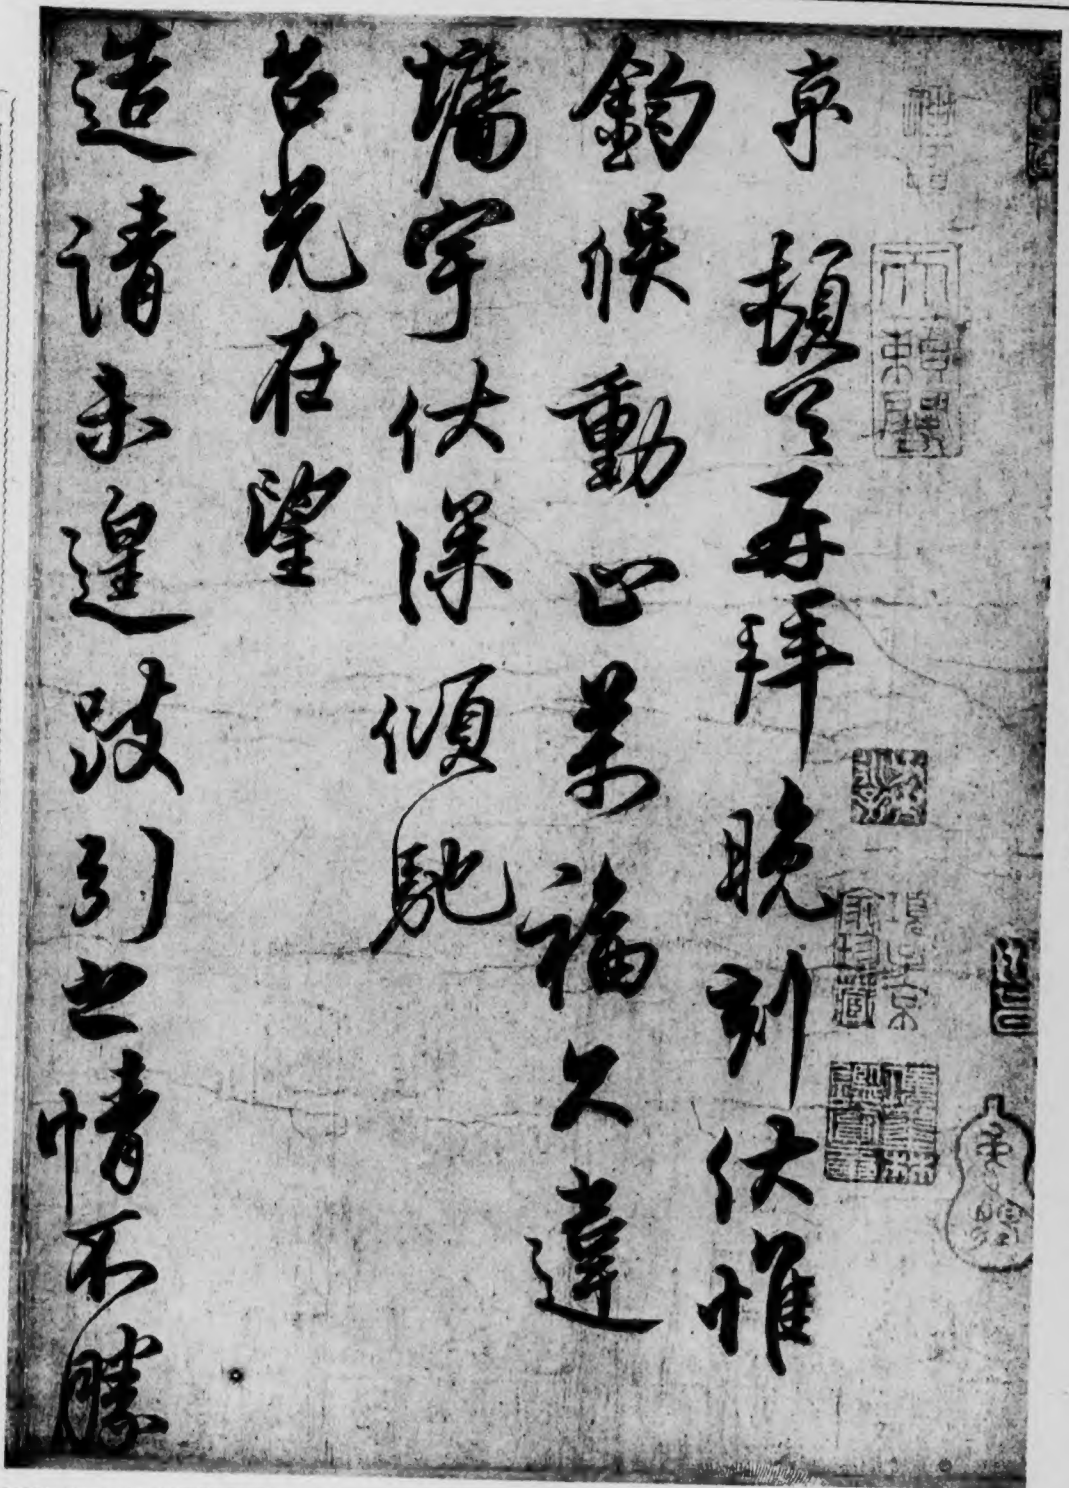 京頓首再拜晚刻伏惟
鈞候動止萬福久違
墉宇伏深傾馳
台光在望
造請未遑跂引之情不勝